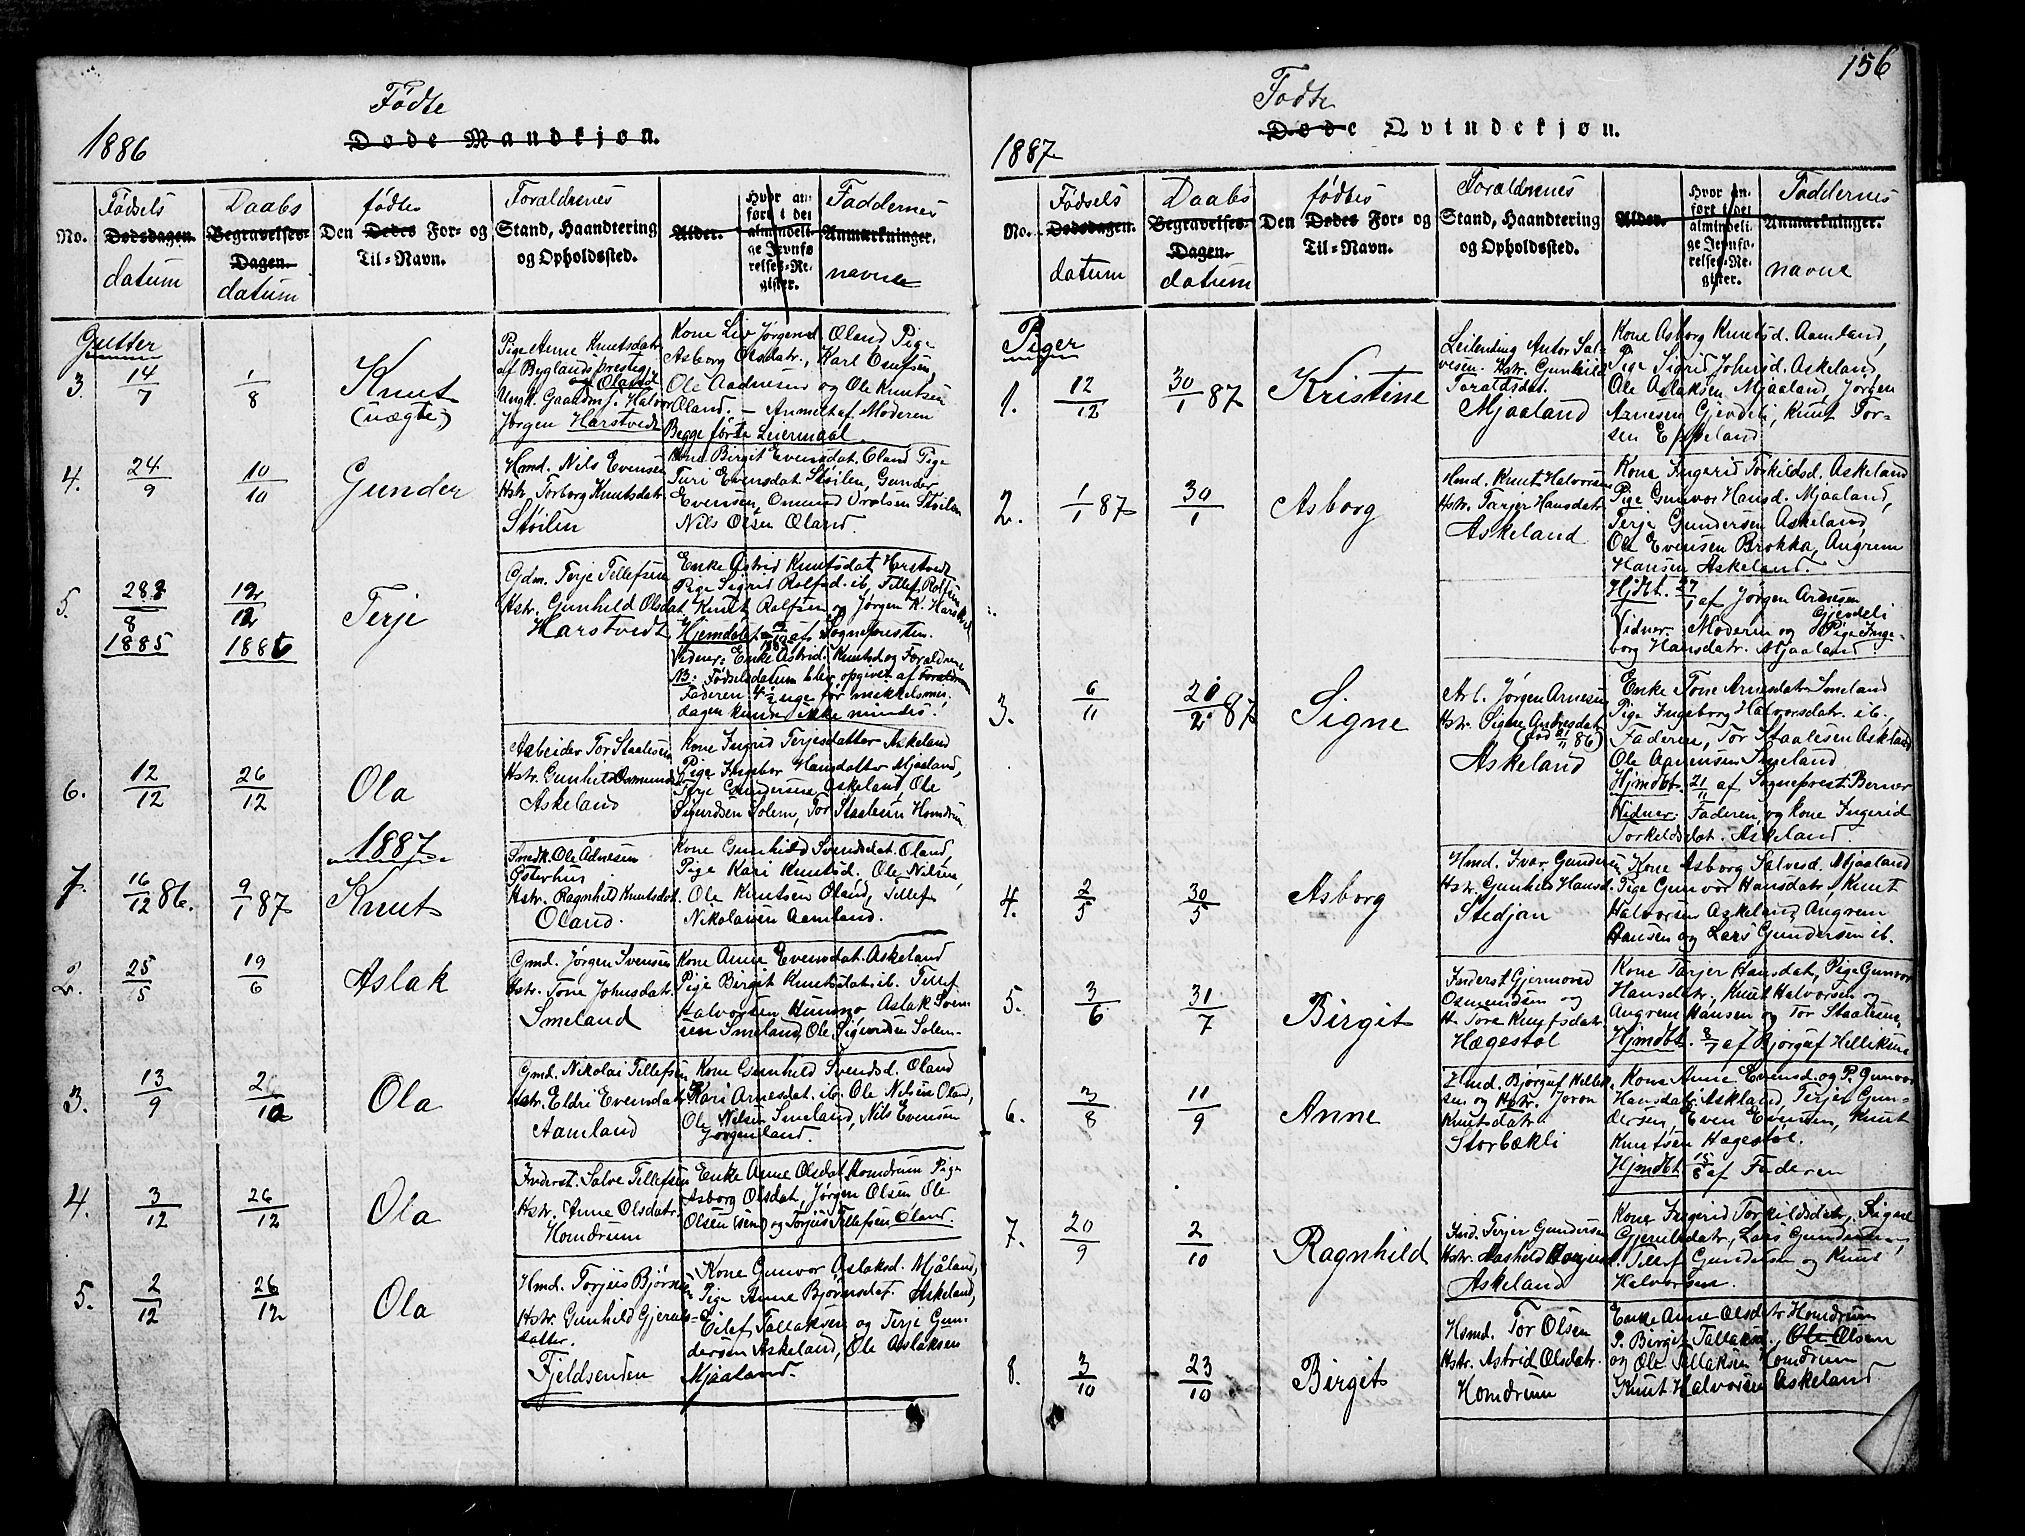 156
Fødte
Døde Mandkjøn.
1886
No.
Fødsels
Dødsdagen.
datum
Daabs
Begravelses-
Dagen.
datum
fødtes
Den Dødes For- og
Til-Navn.
Forældrenes
Stand, Haandtering
og Opholdssted.
Alder.
Hvor an-
ført i det
almindeli-
ge Jevnfø-
relses-Re-
gister.
Faddernes
Anmærkninger.
navne
Gutter
3.
14/7
1/8
Knut
(uægte)
Pige Anne Knutsdatr
af Byglands prestegj.
og Oland
Ungk. Gaardm.s. Halvor
Jørgen Harstvedt
Kone Liv Jørgensd. Oland Pige
Asborg Olsdatr., Karl Osufsen,
Ole Aadnesen og Ole Knutsen
Oland. – Anmeldt af Moderen
Begge første Leiermaal.
4.
24/9
10/10
Gunder
Hmd. Nils Evensen
Hstr. Torborg Knutsdatr
Støilen
Kone Birgit Evensdat. Oland Pige
Turi Evensdat Støilen, Gunder
Evensen, Omund Orolsen Støilen
Nils Olsen Oland.
5.
28/8
1885
12/12
1886
Terje
Gdm. Terje Tellefsen
Hstr. Gunhild Olsdat
Harstvedt
Enke Astrid Knutsdat Harstvedt
Pige Sigrid Rolfsd. ib. Tellef Rolfsen
Knut Rolfsen og Jørgen K. Harstved
Hjemdøbt af Sognepresten.
Vidner: Enke Astrid Knutsd og Forældrene
NB: Fødselsdatum blev opgivet af Forældrene
Faderen 4½ uge før mikkelsmes.
dagen kunde ikke mindes!
6.
12/12
26/12
Ola
Arbeider Tor Staalesen
Hstr. Gunhild Osmunds
Askeland
Kone Ingrid Terjesdatter Askeland
Pige Ingebor Hansdatter Mjaaland,
Terje Gundersen Askeland, Ole
Sigurdsen Solem, Tor Staalesen Homdrum
1887.
7.
16/12 86.
9/1 87
Knut
Smdk. Ole Adnesen
Østerhus
Hstr. Ragnhild Knutsdat.
Oland.
Kone Gunhild Svendsdat. Oland
Pige Kari Knutsd. Ole Nilsen,
Ole Knutsen Oland, Tellef
Nikolaisen Aamland.
2.
25/5
19/6
Aslak
Gmd. Jørgen Svensen
Hstr. Tone Johnsdatr
Smeland
Kone Anne Evensdat. Askeland
Pige Birgit Knutsdat. ib. Tellef
Halvorsen Hunsmo Aslak Sven
sen Smeland, Ole Sigurdsen Solem.
3.
13/9
2/10
Ola
Gmd. Nikolai Tellefsen
Hstr. Eldri Evensdatr
Aamland
Kone Gunhild Svendsd. Oland
Kari Arnesdat. ib. Ole Nilsen Oland,
Ole Nilsen Smeland, Nils Evensen
Jørgenland.
4.
3/12
26/12
Ola
Inderst. Salve Tellefsen
Hstr. Anne Olsdatr
Homdrum
Enke Anne Olsdat. Homdrum Pige
Asborg Olsdat, Jørgen Olsen Ole
Olsen (sen) og Torjus Tellefsen Oland.
5.
2/12
26/12
Ola
Hmd. Torjus Bjørnsen
Hstr. Gunhild Gjeruls-
datter.
Fjeldsenden
Kone Gunvor Aslaksd. Måland,
Pige Anne Bjørnsdat. Askeland,
Eilef Tallaksen og Terje Gun
dersen Askeland, Ole Aslaksen
Mjaaland.
Fødte
Døde Qvindekjøn.
1887
No.
Fødsels
Dødsdagen.
datum
Daabs
Begravelses-
Dagen.
datum
fødtes
Den Dødes For- og
Til-Navn.
Forældrenes
Stand, Haandtering
og Opholdssted.
Alder.
Hvor an-
ført i det
almindeli-
ge Jevnfø-
relses-Re-
gister.
Faddernes
Anmærkninger.
navne
Piger
1.
12/12
30/1 87
Kristine
Leilending Antor Sal-
vesen. Hstr. Gunhild
Toraldsdat.
Mjaaland
Kone Asborg Knutsd. Aamland,
Pige Sigrid Johnsd. Askeland,
Ole Aslaksen Mjaaland, Jørgen
Arnesen Gjevdeli, Knut Tor-
sen Eppeland
2.
1/1 87
30/1
Asborg
Hmd. Knut Halvorsen
Hstr. Tarjer Hansdatr
Askeland
Kone Ingerid Torkildsd. Askeland
Pige Gunvor Hansd. Mjaaland,
Terje Gundersen Askeland
Ole Evensen Brokka, Angrem
Hansen Askeland.
Hjdbt. 27/1 af Jørgen Arnesen
Gjevdeli
Vidner Moderen og Pige Inge-
borg Hansdatr. Mjaaland.
3.
6/11
20/2 87
Signe
Arb. Jørgen Arnesen
Hstr. Signe Andresdat
(død 21/11 86)
Askeland
Enke Tone Arnesdatr Smeland
Pige Ingeborg Halvorsdatr. ib.
Faderen, Tor Staalesen Askeland
Ole Aanensen Smeland
Hjmdbt. 21/11 af Sogneprest Berner
Vidner: Faderen og Kone Ingerid
Torkeldsdat. Askeland.
4.
2/5
30/5
Asborg
Hmd. Ivar Gundersen
Hstr. Gunhild Hansd.
Stedjan
Kone Asborg Salvesd. Mjaaland
Pige Gunvor Hansdatr, Knut
Halvorsen Askeland, Angrem
Hansen og Lars Gundersen ib.
5.
3/6
31/7
Birgit
Inderst Gjermund
Osmundsen og
H. Tore Knutsdat
Hægestøl
Kone Tarjer Hansdat, Pige Gunvor
Hansdatr., Knut Halvorsen og
Angrem Hansen og Tor Staalesen,
Hjmdbt. 8/7 af Bjørguf Helliksen
6.
3/8
11/9
Anne
Hmd. Bjørguf Hellik
sen og Hstr. Joron
Knutsdatr
Storbækli
Kone Anne Evensd. og P. Gunvor
Hansdatr Askland, Terjer Gun-
dersen, Even Evensen, Knut
Knutsen Hægestøl.
Hjmdbt 15/8 af Faderen
7.
20/9
2/10
Ragnhild
Ind. Terjer Gundersen
Hstr. Aashild
Askeland
Kone Ingerid Torkildsdatr, Signe
Gjerulsdatr, Lars Gundersen,
Tellef Gundersen og Knut
Halvorsen.
8.
3/10
23/10
Birgit
Hsmd. Tor Olsen
Hstr. Astrid Olsdatr.
Homdrum
Enke Anne Olsdatr Homdrum
P. Birgit Tallaksd., Ole Olsen
og Ole Tallaksen Homdrum
Knut Halvorsen Askeland